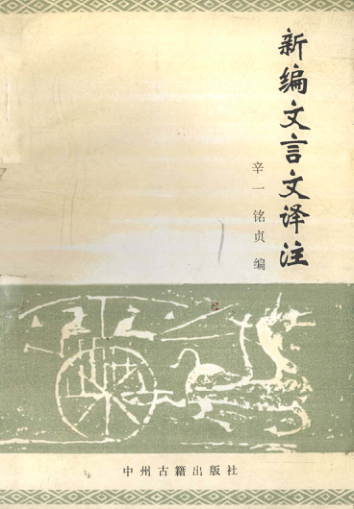 新编文言文译注
辛一 铭贞 编
中州古籍出版社